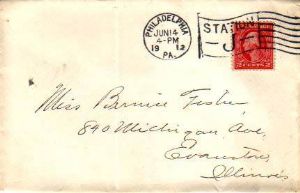 PHILADELPHIA
JUN 14
4-PM
1912
PA.
STATION
J
2 CENTS 2
Miss Bernice Fisher,
840 Michigan Ave,
Evanston,
Illinois